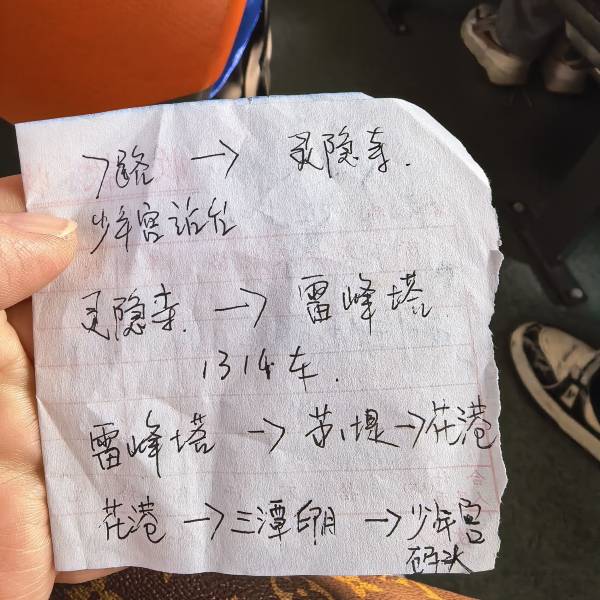 7路 → 灵隐寺.
少年宫站台
灵隐寺. → 雷峰塔.
1314车.
雷峰塔 → 苏堤→花港
花港 →三潭印月 →少年宫
码头